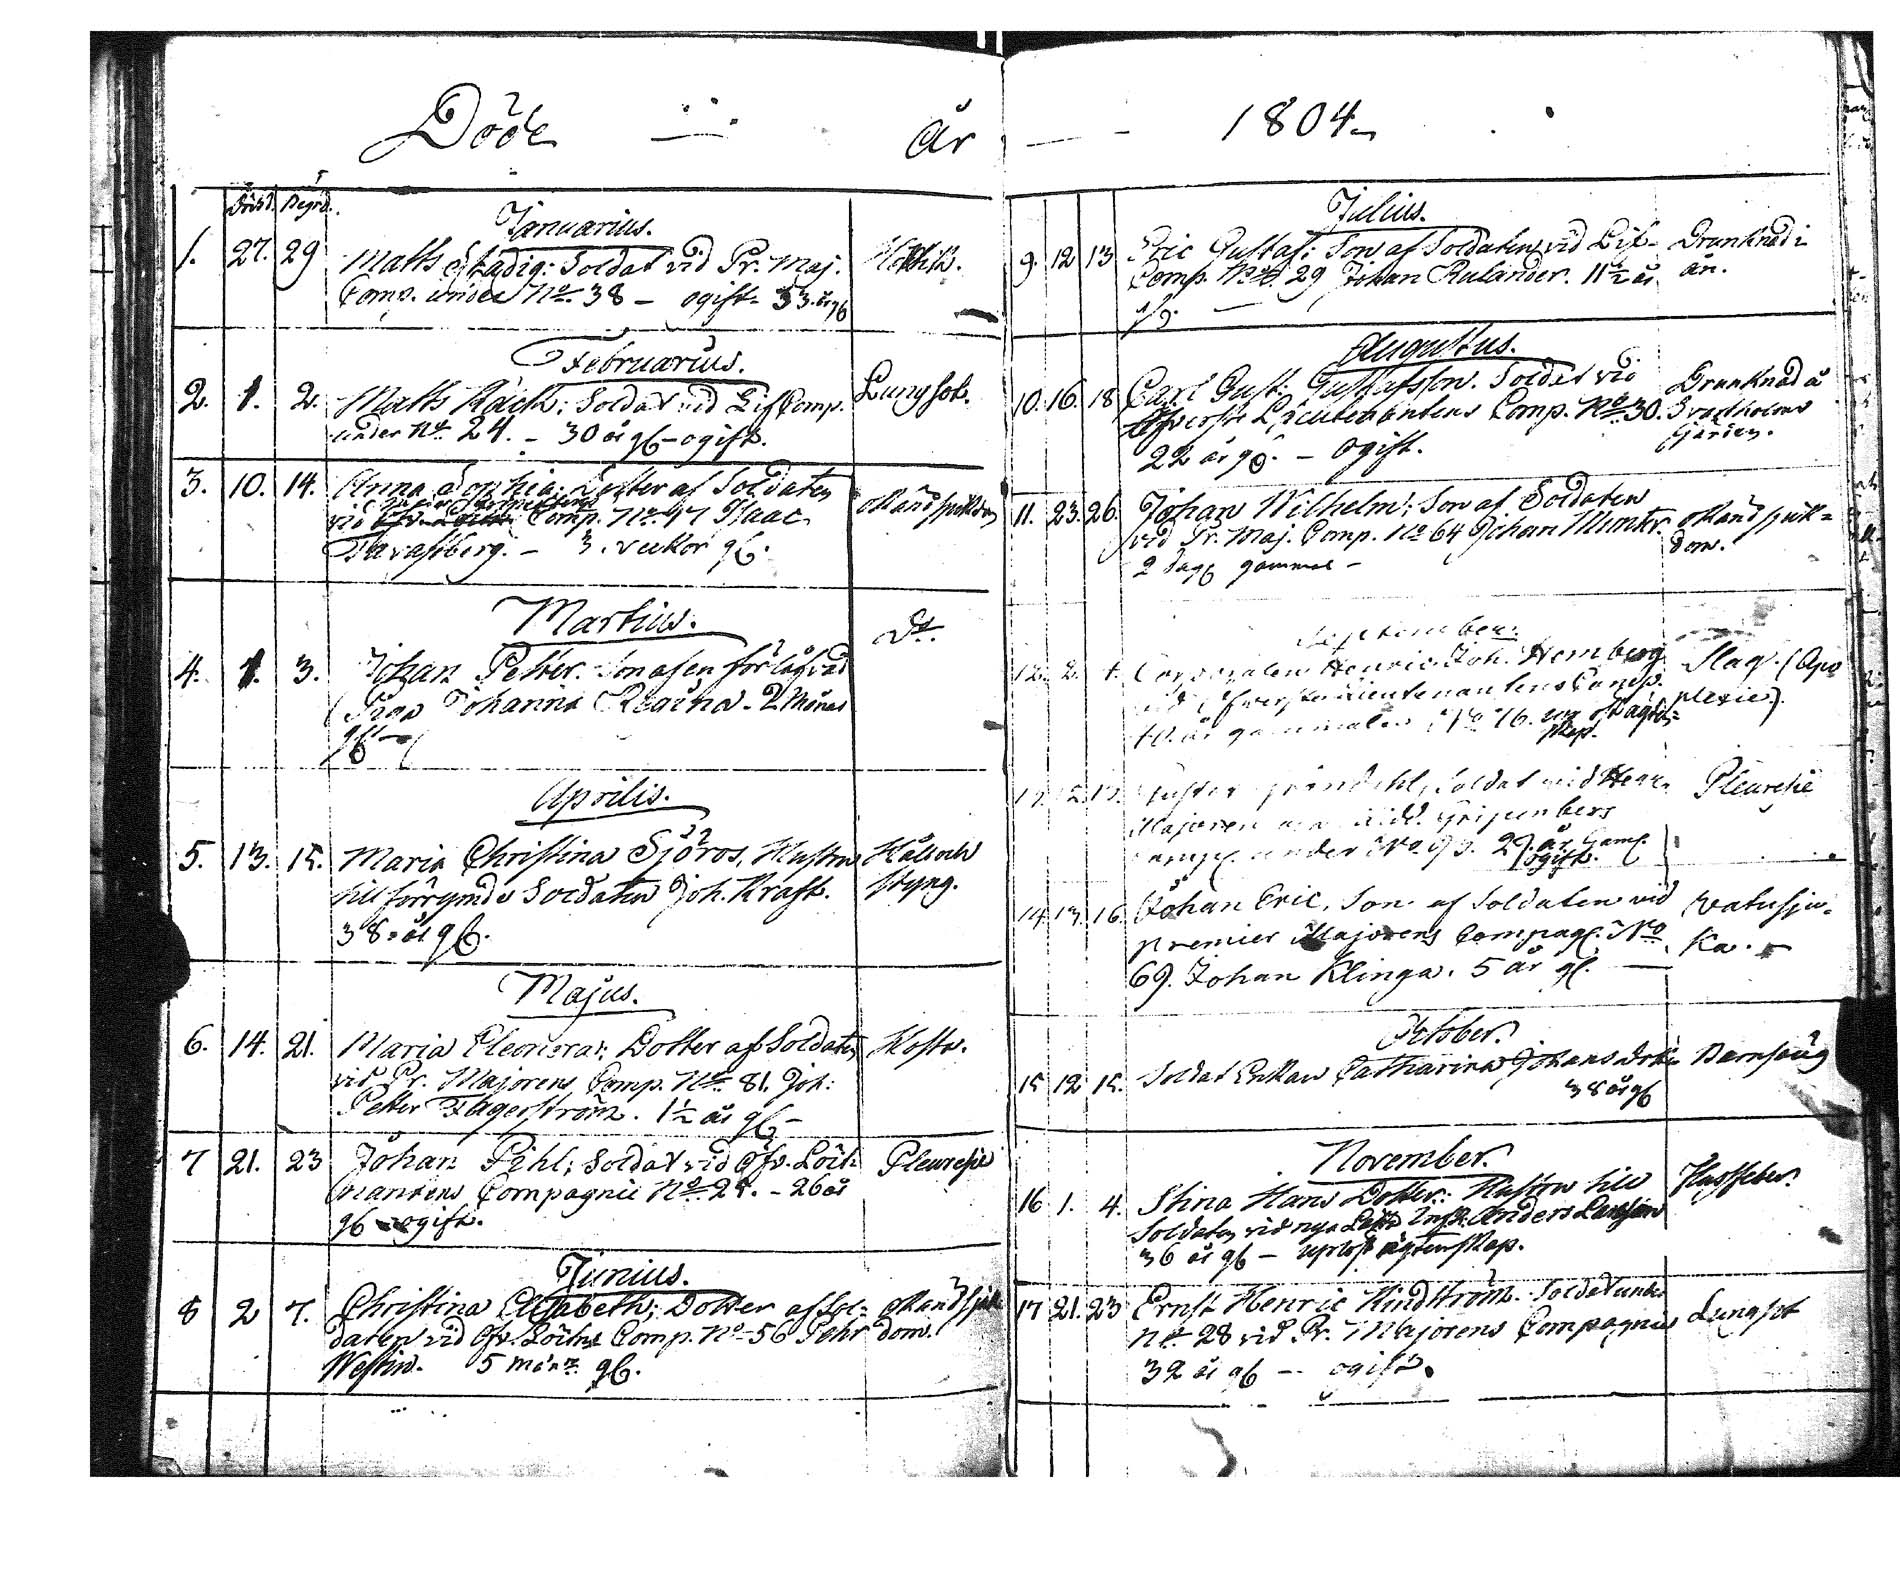 Döde år 1804
Död. Begrd.
Januarius.
1. 27. 29 Matts Stadig: Soldat vid Pr. Maj.
Comp. under No. 38 – ogift. 33. år gl
Februarius.
2. 1. 2. Matts Räck: Soldat vid Lif Comp. Lungsot.
under No. 24. – 30 år gl – ogift.
3. 10. 14. Anna Sophia: Dotter af Soldaten okänd sjukdom
vid Comp. No. 97 Isaac
Tavastberg. – 3. veckor gl.
Martius.
4. 1. 3. Johan Petter. Son af en förlågvad Do.
Pigan Johanna Regina. 2 Månad
gl
Aprilis.
5. 13. 15. Maria Christina Sjöros, Hustru Håll och
till förrymde Soldaten Joh. Kraft. styng.
38. år gl.
Majus.
6. 14. 21. Maria Eleonora: Dotter af Soldaten Hosta.
vid Pr. Majorens Comp. No. 81. Joh:
Petter Fagerström. 1½ år gl –
7 21. 23 Johan Pihl; Soldat vid Öfv. Löit- Pleuresie
nantens Compagnie No. 28. – 26 år
gl ogift.
Junius.
8 2 7. Christina Elisabeth; Dotter af Sol= okänd sjuk
daten vid Öfv. Löitns Comp. No 56 Pehr dom.
Westin. 5 mån. gl.
Julius.
9. 12 13 Eric Gustaf: Son af Soldaten vid Lif- Drunknad i
Comp. No. 29 Johan Rulander. 11½ år ån.
gl.
Augustus.
10. 16. 18 Carl Gust: Gustafsson. Soldat vid Drunknad å
Öfverste Lieutenantens Comp. No 30. Svartholms
22 år gl. – ogift. fjärden.
11. 23. 26. Johan Wilhelm: Son af Soldaten okänd sjuk=
vid Pr. Maj. Comp. No 64 Johan Munter. dom.
2 dag gammal –
September.
12. 2. 4. Corporalen Henric Joh. Hemberg Slag. (Apo
vid Öfverstelieutenantens Comp. plexie).
40. år gammal No 76. ägten=
skap.
12. Soldat vid Herr Pleuresie
Majoren Gripenbergs
Comp. under No 93. 29. år Gaml.
ogift.
14. 13. 16. Johan Eric, Son af Soldaten vid Vatusju=
premier Majorens Compag. No ka.
69. Johan Klinga. 5 år gl.
October.
15 12 15. Soldat Enkan Catharina Johansdotter Barnsäng
38 år gl
November.
16 1. 4. Stina Hans Dotter: Hustru till
Soldaten vid nya Anders Larsson
36 år gl – ägtenskap.
17 21. 23 Ernst Henric Hindström. Soldat under Lungsot
No 28 vid Pr. Majorens Compagnie
32 år gl –. ogift.